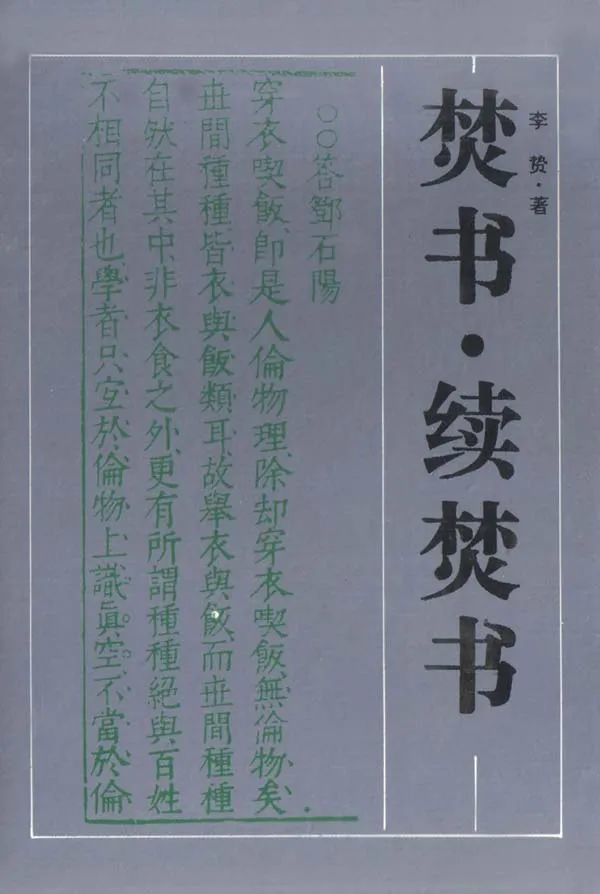 李贽·著
焚书·续焚书
〇〇答鄧石陽
穿衣喫飯、即是人倫物理、除却穿衣喫飯、無倫物矣、
世間種種、皆衣與飯類耳、故舉衣與飯、而世間種種
自然在其中、非衣食之外、更有所謂種種絕與百姓
不相同者也、學者只宜於倫物上識眞空、不當於倫